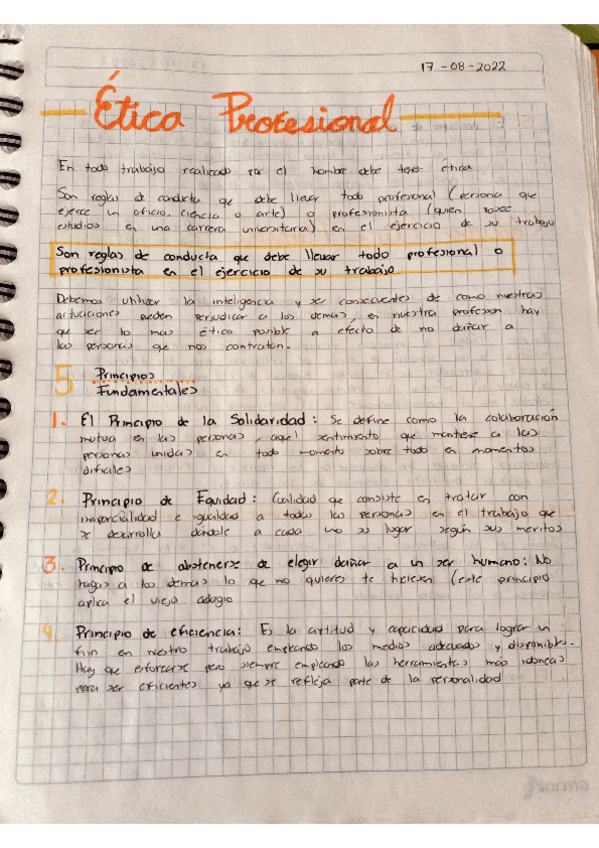 17-08-2022
Ética Profesional
En todo trabajo realizado por el hombre debe tener ética
Son reglas de conducta que debe llevar todo profesional (persona que
ejerce un oficio, ciencia o arte) o profesionista (quien posee
estudios en una carrera universitaria) en el ejercicio de su trabajo
Son reglas de conducta que debe llevar todo profesional o
profesionista en el ejercicio de su trabajo
Debemos utilizar la inteligencia y ser consecuentes de como nuestras
actuaciones pueden perjudicar a los demas, en nuestra profesion hay
que ser lo mas ético posible a efecto de no dañar a
las personas que nos contratan.
5 Principios
Fundamentales
1. El Principio de la Solidaridad: Se define como la colaboración
mutua en las personas, aquel sentimiento que mantiene a las
personas unidas en todo momento sobre todo en momentos
dificiles
2. Principio de Equidad: Cualidad que consiste en tratar con
imparcialidad e igualdad a todas las personas en el trabajo que
se desarrolla dándole a cada uno su lugar según sus meritos
3. Principio de abstenerse de elegir dañar a un ser humano: No
hagas a los demas lo que no quieres te hiciesen (este principio
aplica el viejo adagio
4. Principio de eficiencia: Es la aptitud y capacidad para lograr un
fin en nuestro trabajo empleando los medios adecuados y disponibles.
Hay que esforzarse pero siempre empleando las herramientas más idoneas
para ser eficientes ya que se refleja parte de la personalidad
Norma